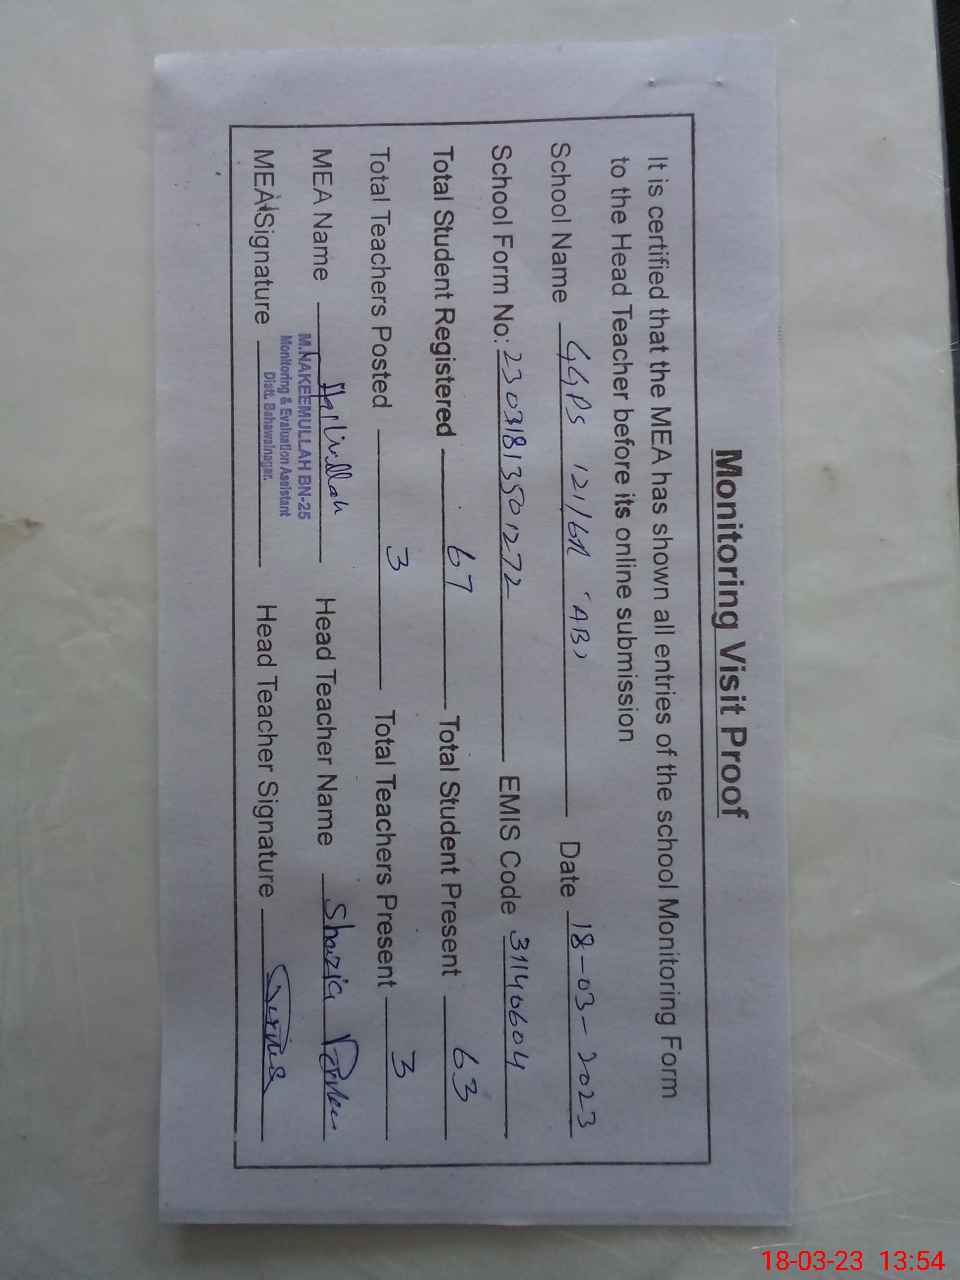 Monitoring Visit Proof
It is certified that the MEA has shown all entries of the school Monitoring Form
to the Head Teacher before its online submission
School Name GGPS 121/6R "AB" Date 18-03-2023
School Form No: 23031813501272 EMIS Code 31140604
Total Student Registered 67 Total Student Present 63
Total Teachers Posted 3 Total Teachers Present 3
MEA Name Head Teacher Name Shazia
M.HAKEEMULLAH BN-25
Monitoring & Evaluation Assistant
Distt. Bahawalnagar.
MEA Signature Head Teacher Signature
18-03-23 13:54